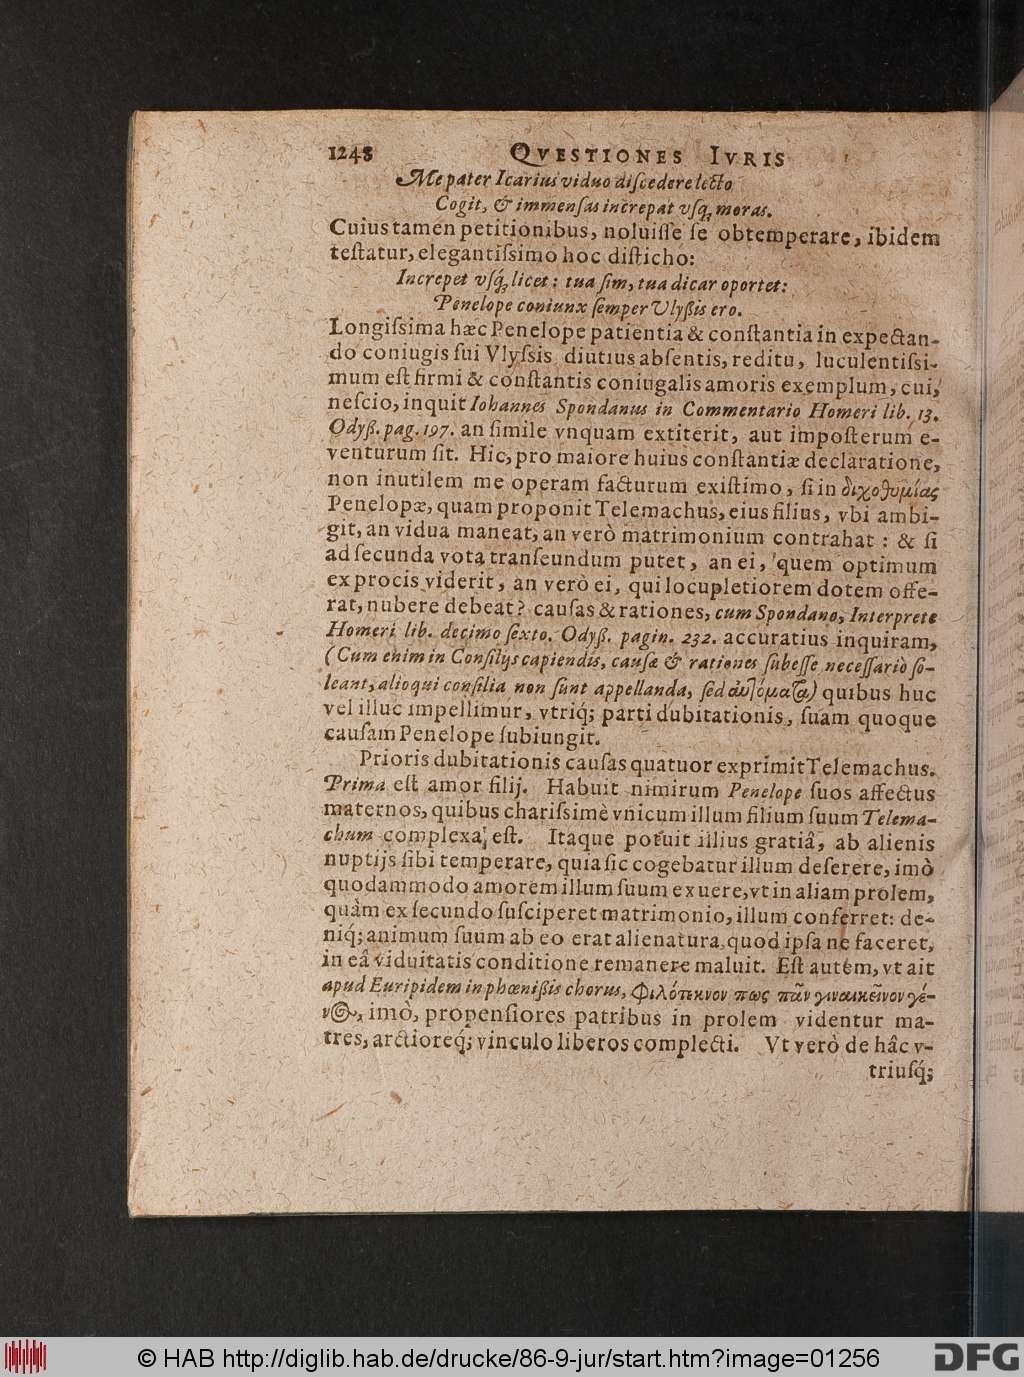 1248 QVESTIONES IVRIS
Me pater Icarius viduo diſcedere lecto
Cogit, & immenſas increpat vſq; moras.
Cuius tamen petitionibus, noluiſſe ſe obtemperare, ibidem
teſtatur, elegantiſsimo hoc diſticho:
Increpet vſq́; licet: tua ſim, tua dicar oportet:
Penelope coniunx ſemper Vlyßis ero.
Longiſsima hæc Penelope patientia & conſtantia in expectan-
do coniugis ſui Vlyſsis diutius abſentis, reditu, luculentiſsi-
mum eſt firmi & conſtantis coniugalis amoris exemplum, cui,
neſcio, inquit Iohannes Spondanus in Commentario Homeri lib. 13.
Odyß. pag. 197. an ſimile vnquam extiterit, aut impoſterum e-
venturum ſit. Hic, pro maiore huius conſtantiæ declaratione,
non inutilem me operam facturum exiſtimo, ſi in διχοθυμίας
Penelopæ, quam proponit Telemachus, eius filius, vbi ambi-
git, an vidua maneat, an verò matrimonium contrahat: & ſi
ad ſecunda vota tranſeundum putet, an ei, quem optimum
ex procis viderit, an verò ei, qui locupletiorem dotem offe-
rat, nubere debeat? cauſas & rationes, cum Spondano, Interprete
Homeri lib. decimo ſexto. Odyß. pagin. 232. accuratius inquiram,
(Cum enim in Conſilijs capiendis, cauſæ & rationes ſubeſſe neceſſariò ſo-
leant, alioqui conſilia non ſunt appellanda, ſed αυτόματα) quibus huc
vel illuc impellimur, vtriq́; parti dubitationis, ſuam quoque
cauſam Penelope ſubiungit.
Prioris dubitationis cauſas quatuor exprimit Telemachus.
Prima eſt amor filij. Habuit nimirum Penelope ſuos affectus
maternos, quibus chariſsimè vnicum illum filium ſuum Telema-
chum complexa eſt. Itaque potuit illius gratiâ, ab alienis
nuptijs ſibi temperare, quia ſic cogebatur illum deſerere, imò
quodammodo amorem illum ſuum exuere, vt in aliam prolem,
quàm ex ſecundo ſuſciperet matrimonio, illum conferret: de-
niq́; animum ſuum ab eo erat alienatura. quod ipſa ne faceret,
in eâ viduitatis conditione remanere maluit. Eſt autem, vt ait
apud Euripidem in phœnißis chorus, Φιλότεκνον πως πᾶν γυναικεῖον γέ-
νος, imò, propenſiores patribus in prolem videntur ma-
tres, arctioreq́; vinculo liberos complecti. Vt verò de hâc v-
triuſq́;
© HAB http://diglib.hab.de/drucke/86-9-jur/start.htm?image=01256
DFG